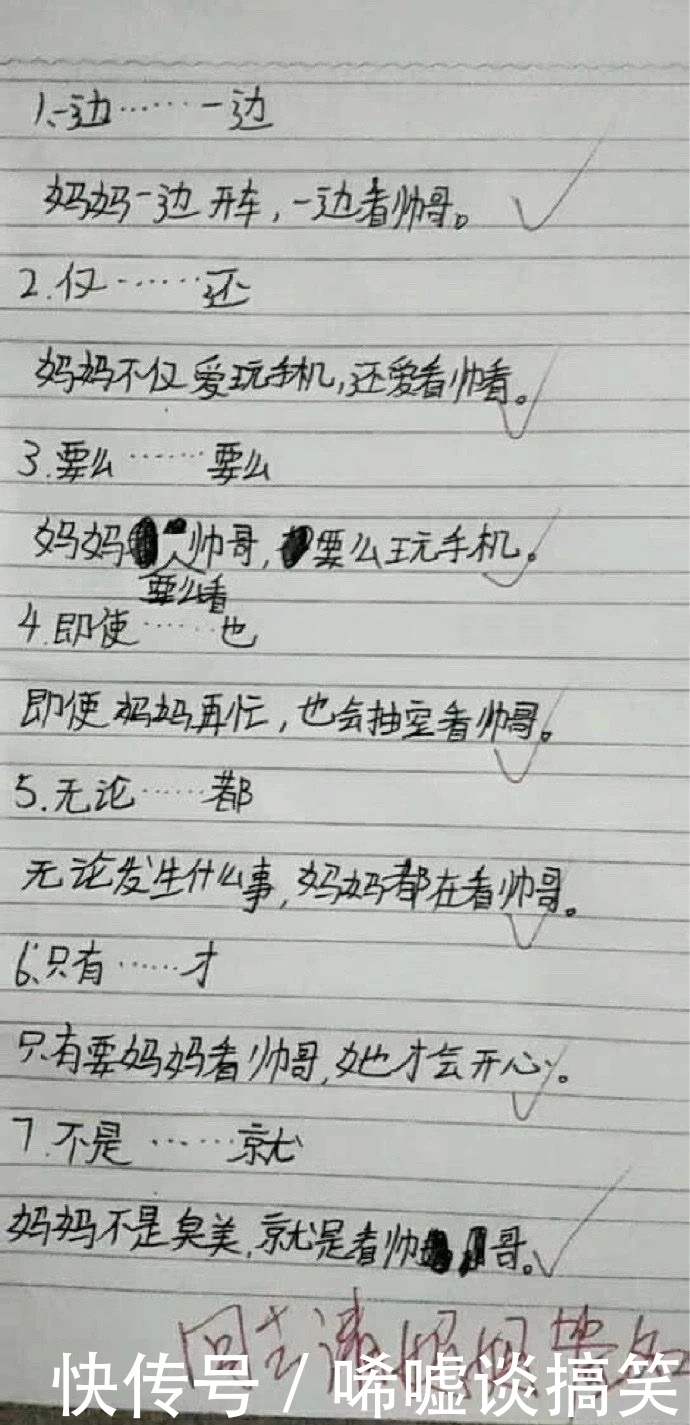 1、一边……一边
妈妈一边开车，一边看帅哥。
2.仅……还
妈妈不仅爱玩手机，还爱看帅看。
3.要么……要么
妈妈帅哥，要么玩手机。
要么看
4.即使……也
即使妈妈再忙，也会抽空看帅哥。
5.无论……都
无论发生什么事，妈妈都在看帅哥。
6.只有……才
只有要妈妈看帅哥，她才会开心。
7.不是……就
妈妈不是臭美，就是看帅哥。
回去请妈妈签名
快传号/唏嘘谈搞笑